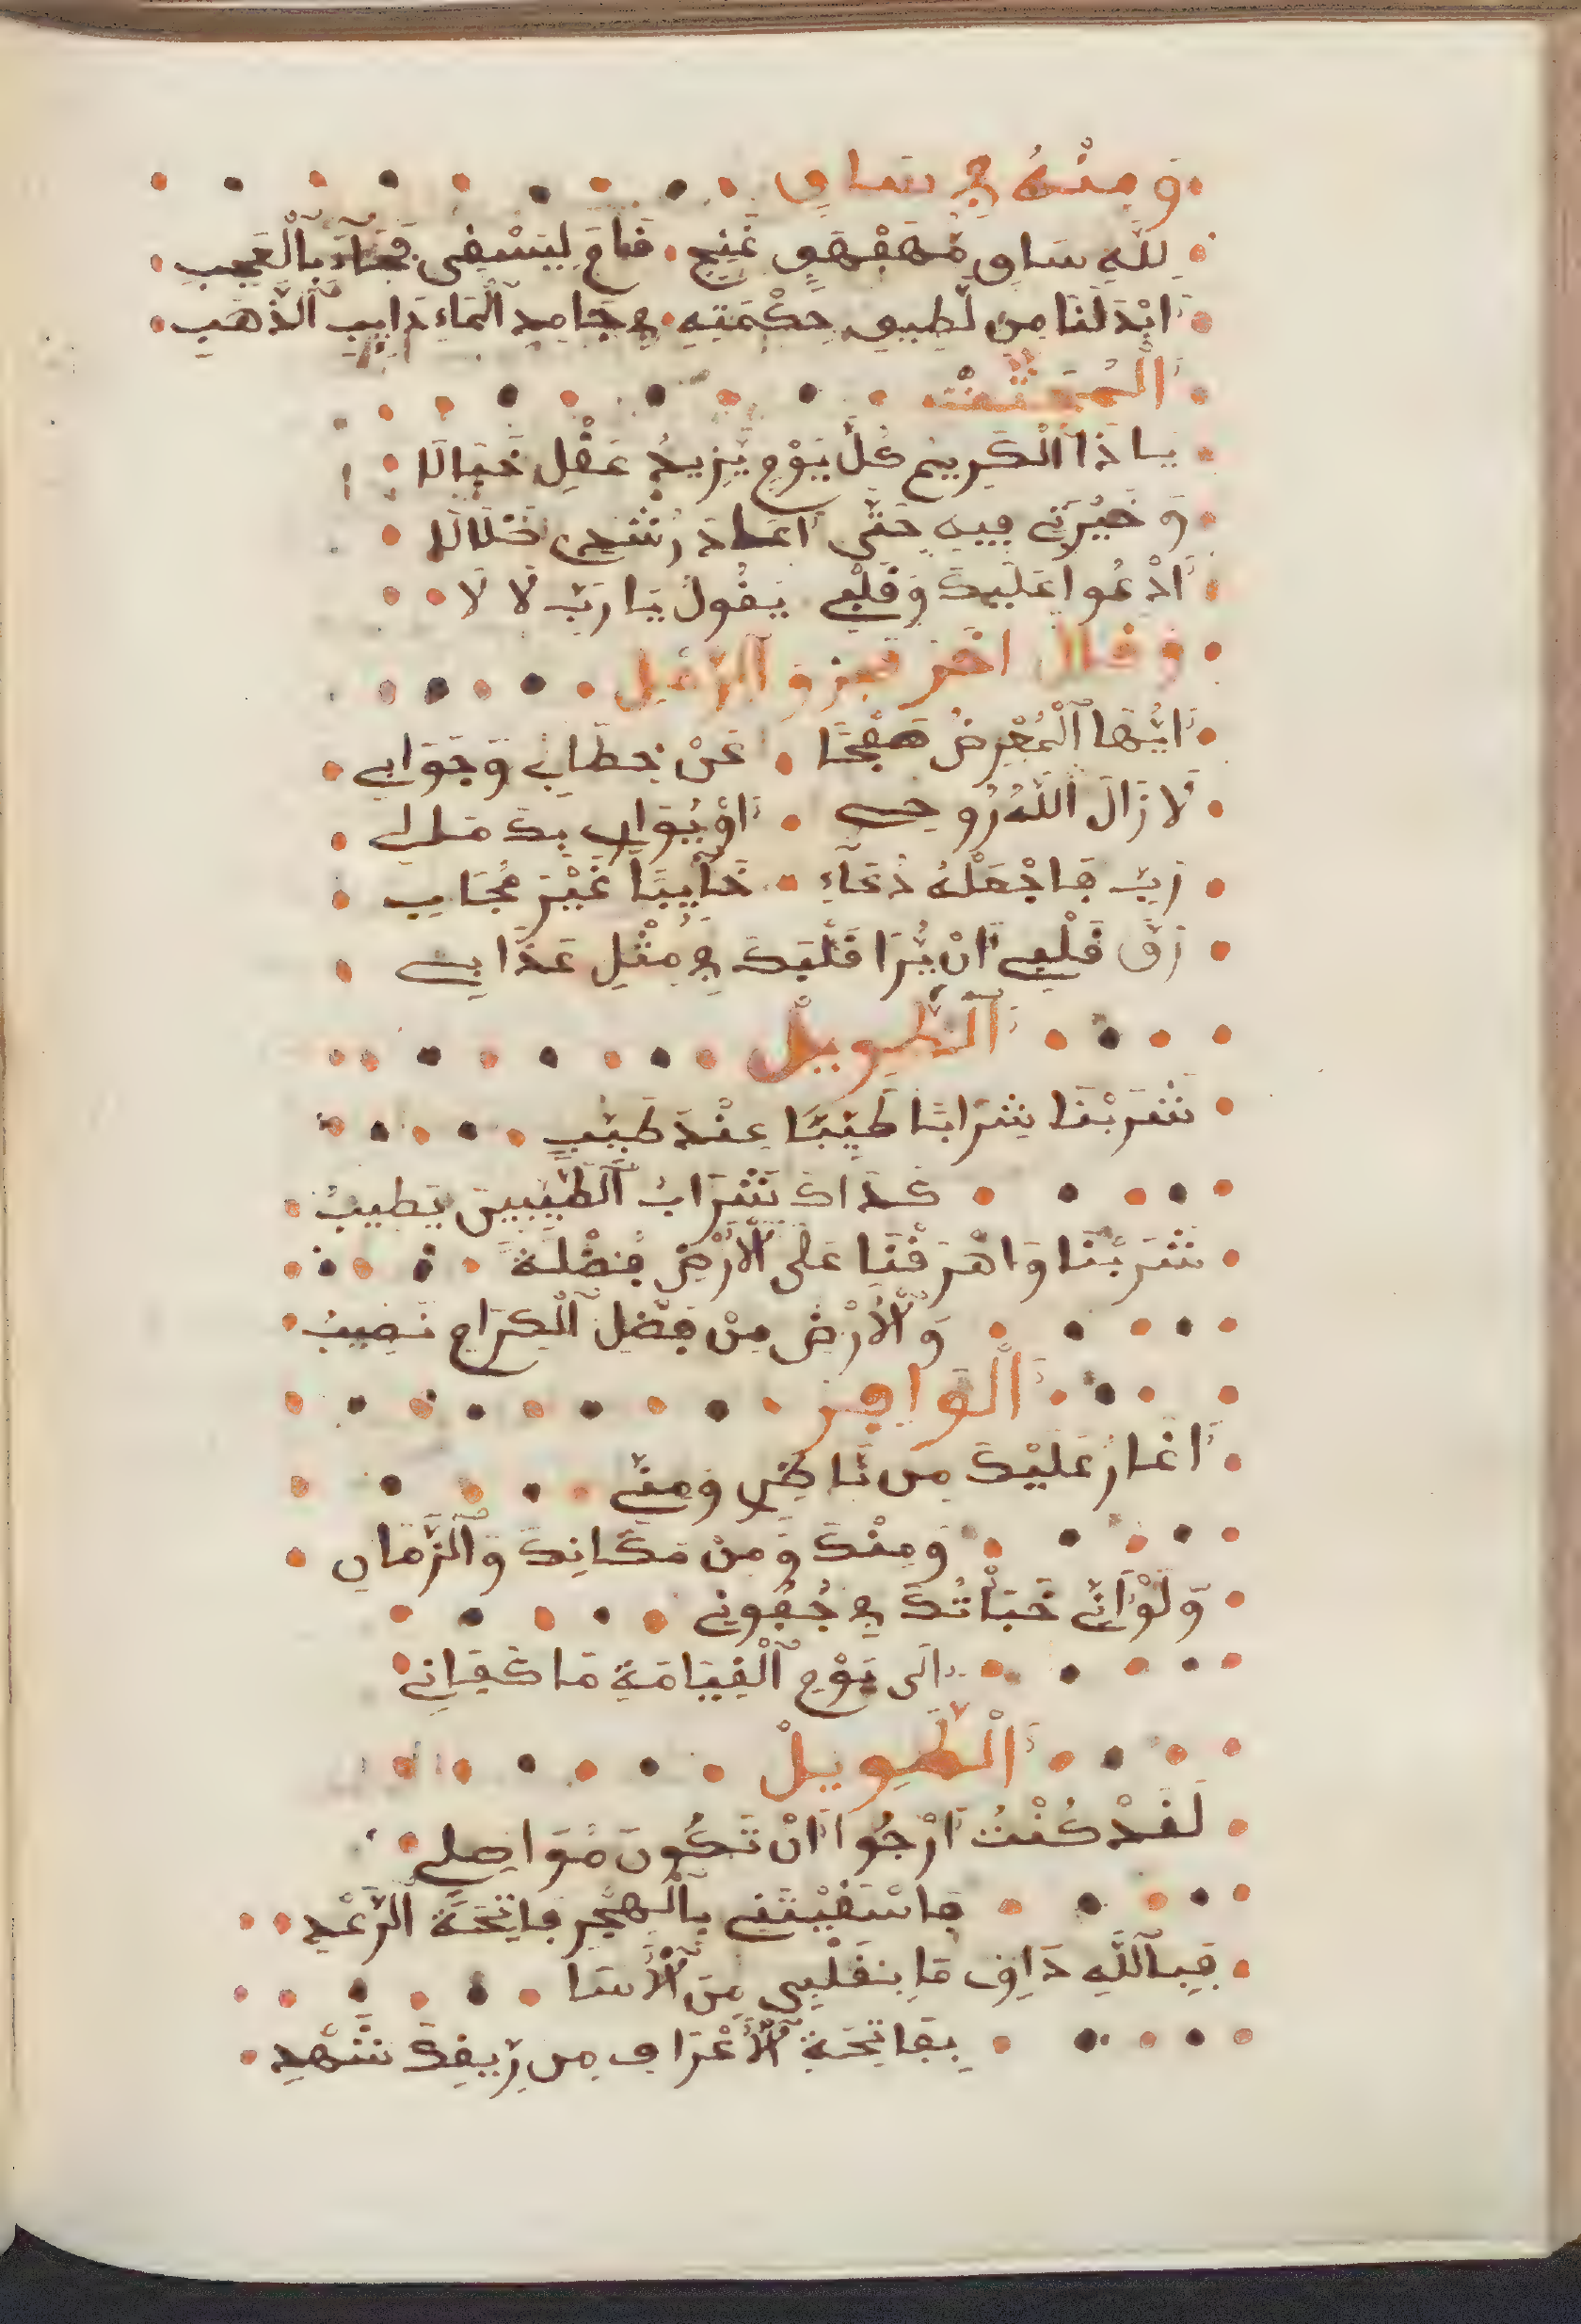 وَمِنْهُ فِي سَاقٍ
لِلَّهِ سَاقٍ مُهَفْهَفٍ غَنِجٍ قَامَ لِيَسْقِى فَجَاءَ بِالْعَجَبِ
اَبْدَلَنَا مِن لَّطِيفِ حِكْمَتِهِ فِي جَامِدِ الْمَاءِ ذَايِبَ الذَّهَبِ
اَلْمُجْتَثّْ
يَا ذَا الْكَرِيم كُلَّ يَوْمٍ يَّزِيدُ عَقْلِ خَبَالَا
وَحَيَّرَنِي فِيهِ حَتَّى اَعَادَ رُشْدِى ضَلَالَا
اَدْعُوا عَلَيْكَ وَقَلْبِي يَقُولُ يَا رَبِّ لَا لَا
وَقَالَ اخَر مجزو الرَّمَل
اَيُّهَا الْمُعْرِضُ صَفْحًا عَنْ خِطَابِي وَجَوَابِي
لَا زَالَ اللَّهُ رُوحِي اَوْ يُوَارِي بِكَ مَا لِي
رَبِّ فَاجْعَلْهُ دُعَاءً خَايِبًا غَيْرَ مُجَابِ
رَقَّ قَلْبِي اَنْ يُّرَا قَلْبَكَ فِي مِثْلِ عَذَابِي
اَلطَّوِيلْ
شَرِبْنَا شَرَابًا طَيِّبًا عِنْدَ طَيِّبٍ
كَذَاكَ شَرَابُ الطَّيِّبِينَ يَطِيبُ
شَرِبْنَا وَاهْرَقْنَا عَلَى الْاَرْضِ فَضْلَةً
وَالْاَرْضِ مِنْ فَضْلِ الْكِرَامِ نَصِيبُ
اَلْوَافِر
اَغَارُ عَلَيْكَ مِن نَّاظِرِي وَمِنِّي
وَمِنْكَ وَمِنْ مَكَانِكَ وَالزَّمَانِ
وَلَوْ اَنِّي خَبَاْتُكَ فِي جُفُونِي
اِلَى يَوْمِ الْقِيَامَةِ مَا كَفَانِي
اَلطَّوِيلْ
لَقَدْ كُنْتُ اَرْجُوا اَنْ تَكُونَ مُوَاصِلِي
فَاسْقَيْتَنِي بِالْهَجْرِ فَاتِحَةَ الرَّعْدِ
فَبِاللَّهِ دَاوِ مَا بِقَلْبِي مِنَ الْاَسَا
بِفَاتِحَةِ الْاَعْرَافِ مِن رِّيقِكَ شَهْدِ